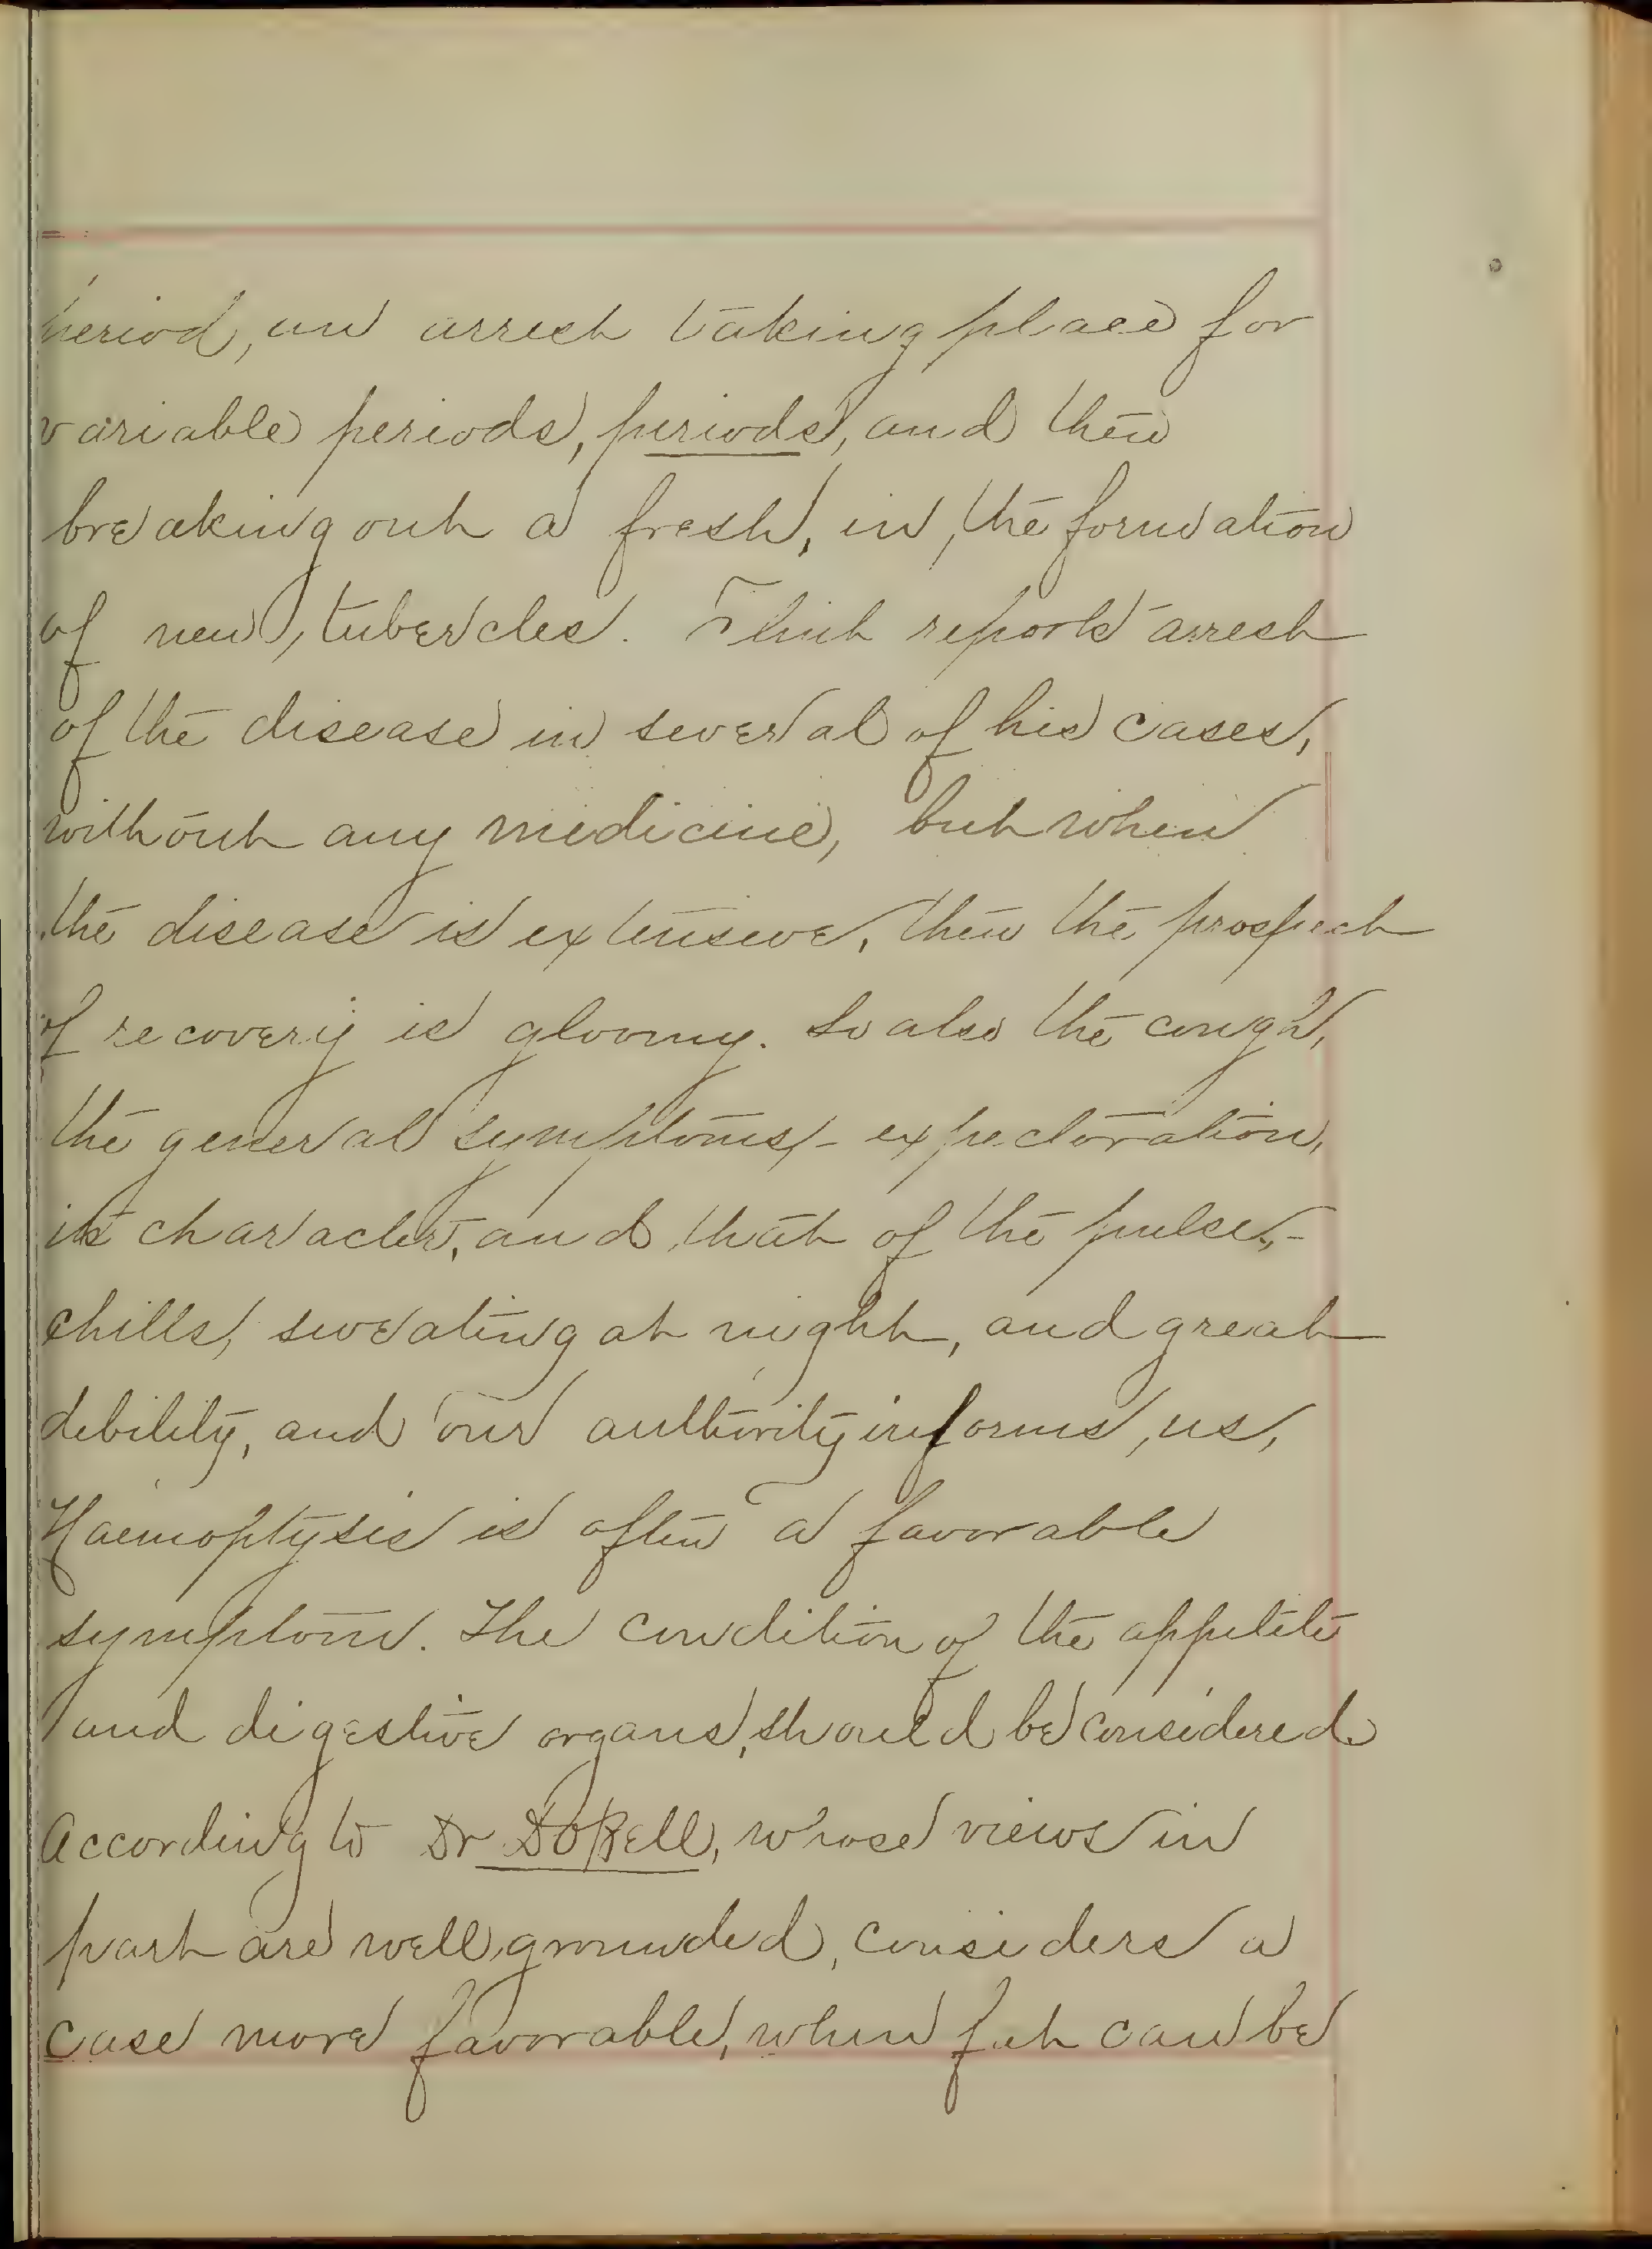 period, an arrest taking place for
variable periods, periods, and then
breaking out a fresh, in, the formation
of new, tubercles. Flint reports arrest
of the disease in several of his cases,
without any medicine, but when
the disease is extensive, then the prospect
of recovery is gloomy. So also the cough,
the general symptoms,- expectoration,
its character, and that of the pulse,-
chills, sweating at night, and great
debility, and our authority informs, us,
Haemoptysis is often a favorable
symptom. The condition of the appetite
and digestive organs, should be considered.
According to Dr DOBELL, whose views in
part are well, grounded, considers a
case more favorable, when fat can be